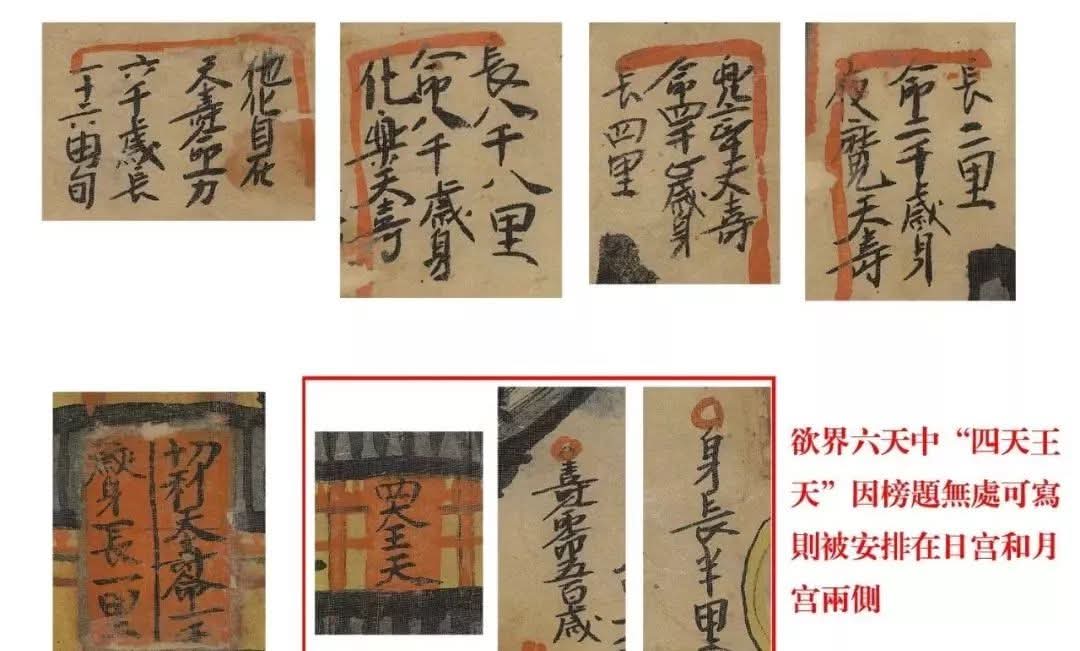 他化自在
天壽命一万
六千歲長
一十六由旬
化樂天壽
命八千歲身
長八千八里
兜率天壽
命四千歲身
長四里
夜摩天壽
命二千歲身
長二里
切利天壽命一千
歲身長一里
四天王天
壽命五百歲
身長半里
欲界六天中“四天王
天”因榜題無處可寫
則被安排在日宮和月
宮兩側